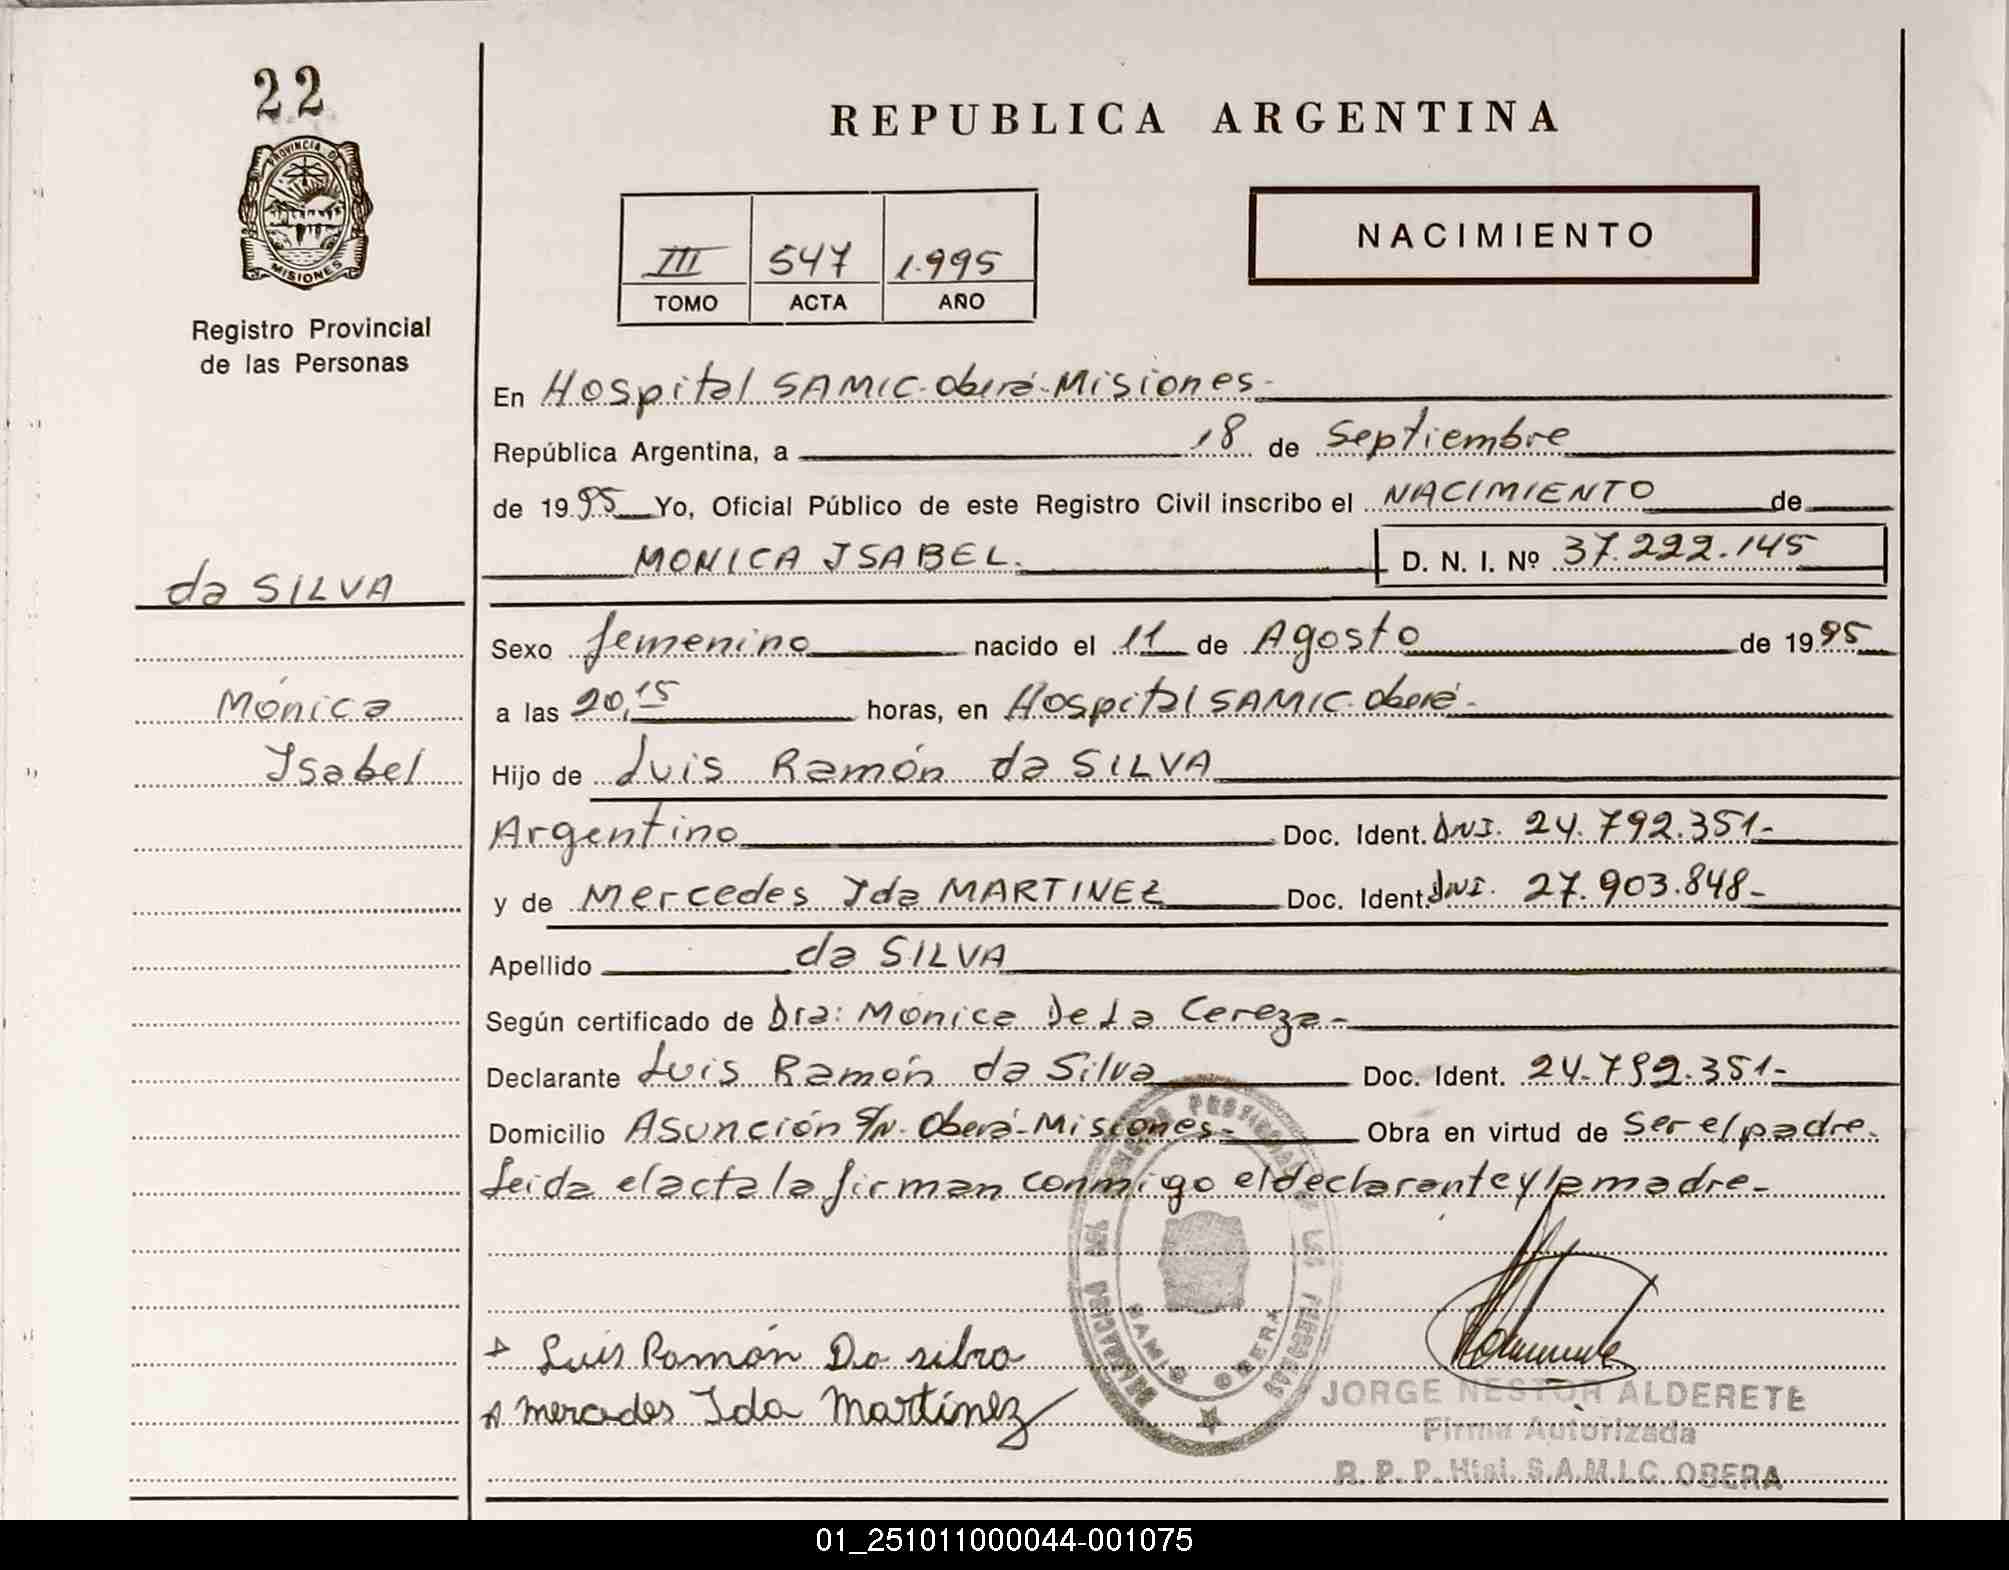 22
PROVINCIA DE
MISIONES
Registro Provincial
de las Personas
da SILVA
Mónica
Isabel
REPUBLICA ARGENTINA
III 547 1.995
TOMO ACTA AÑO
NACIMIENTO
En Hospital SAMIC-Oberá-Misiones-
República Argentina, a 18 de Septiembre
de 1995 Yo, Oficial Público de este Registro Civil inscribo el NACIMIENTO de
MONICA ISABEL. D. N. I. Nº 37.222.145
Sexo femenino nacido el 11 de Agosto de 1995
a las 20,15 horas, en Hospital SAMIC-Oberá-
Hijo de Luis Ramón da SILVA
Argentino Doc. Ident. DNI. 24.792.351-
y de Mercedes Ida MARTINEZ Doc. Ident. DNI. 27.903.848-
Apellido da SILVA
Según certificado de Dra: Mónica De La Cereza-
Declarante Luis Ramón da Silva Doc. Ident. 24.792.351-
Domicilio Asunción S/N-Oberá-Misiones- Obra en virtud de Ser el padre-
Leida el acta la firman conmigo el declarante y la madre-
Luis Ramón Da silva
Mercedes Ida Martínez
SAMIC OBERA
JORGE NESTOR ALDERETE
Firma Autorizada
R. P. P. Htal. S.A.M.I.C. OBERA
01_251011000044-001075